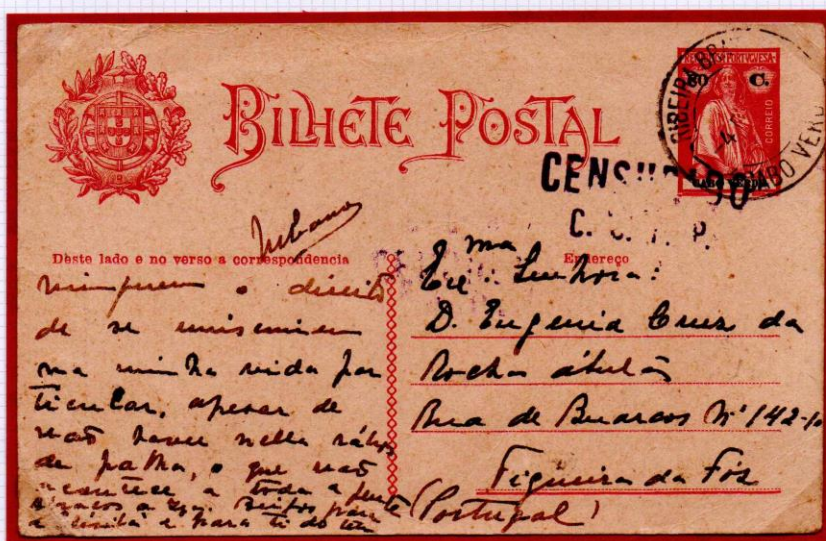 BILHETE POSTAL
REPUBLICA PORTUGUESA
80 C.
CORREIO
CABO VERDE
RIBEIRA BRA
CABO VERD
CENSU
C.
Deste lado e no verso a correspondencia
Endereço
o direito
de se
na minha vida par
ticular, apesar de
não haver nella rabos
de palha, o que não
acontece a toda a gente
e para ti do
Exma Senhora:
D. Eugenia Cruz da
Rocha
Rua de Buarcos Nº 142-1º
Figueira da Fóz
(Portugal)